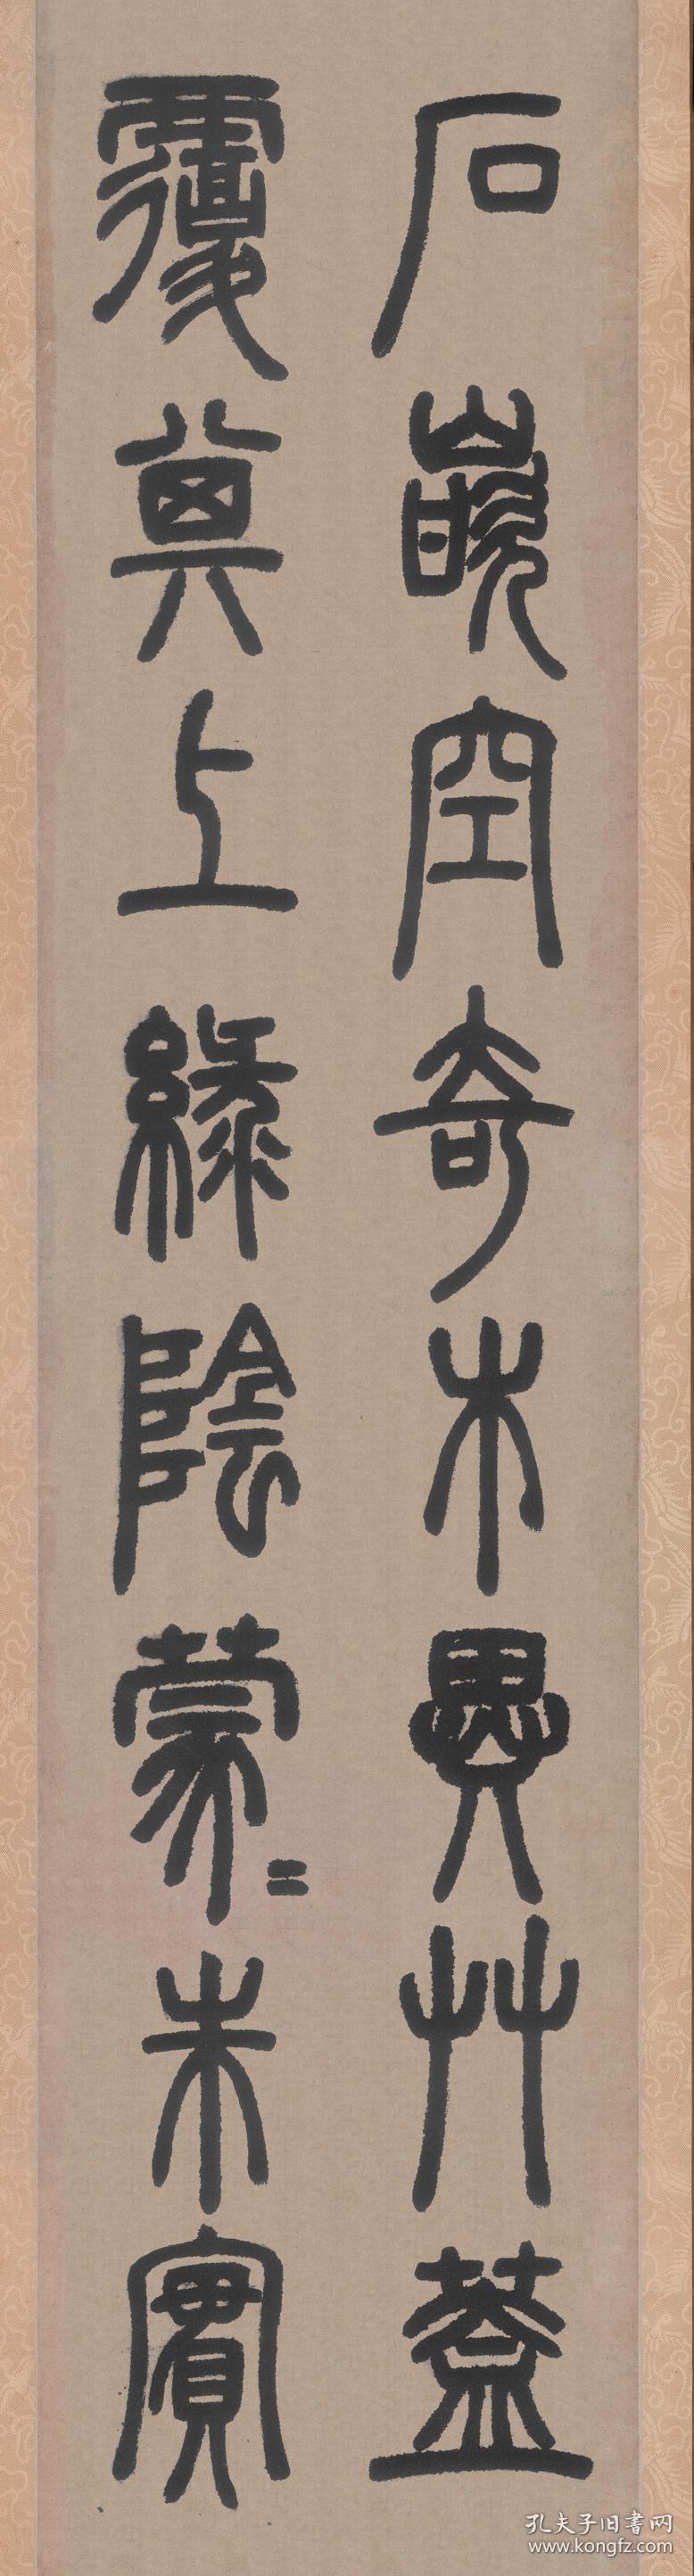 石嵌空奇木異艸蓋
覆其上綠陰蒙〻朱實
孔夫子旧書网
www.kongfz.com